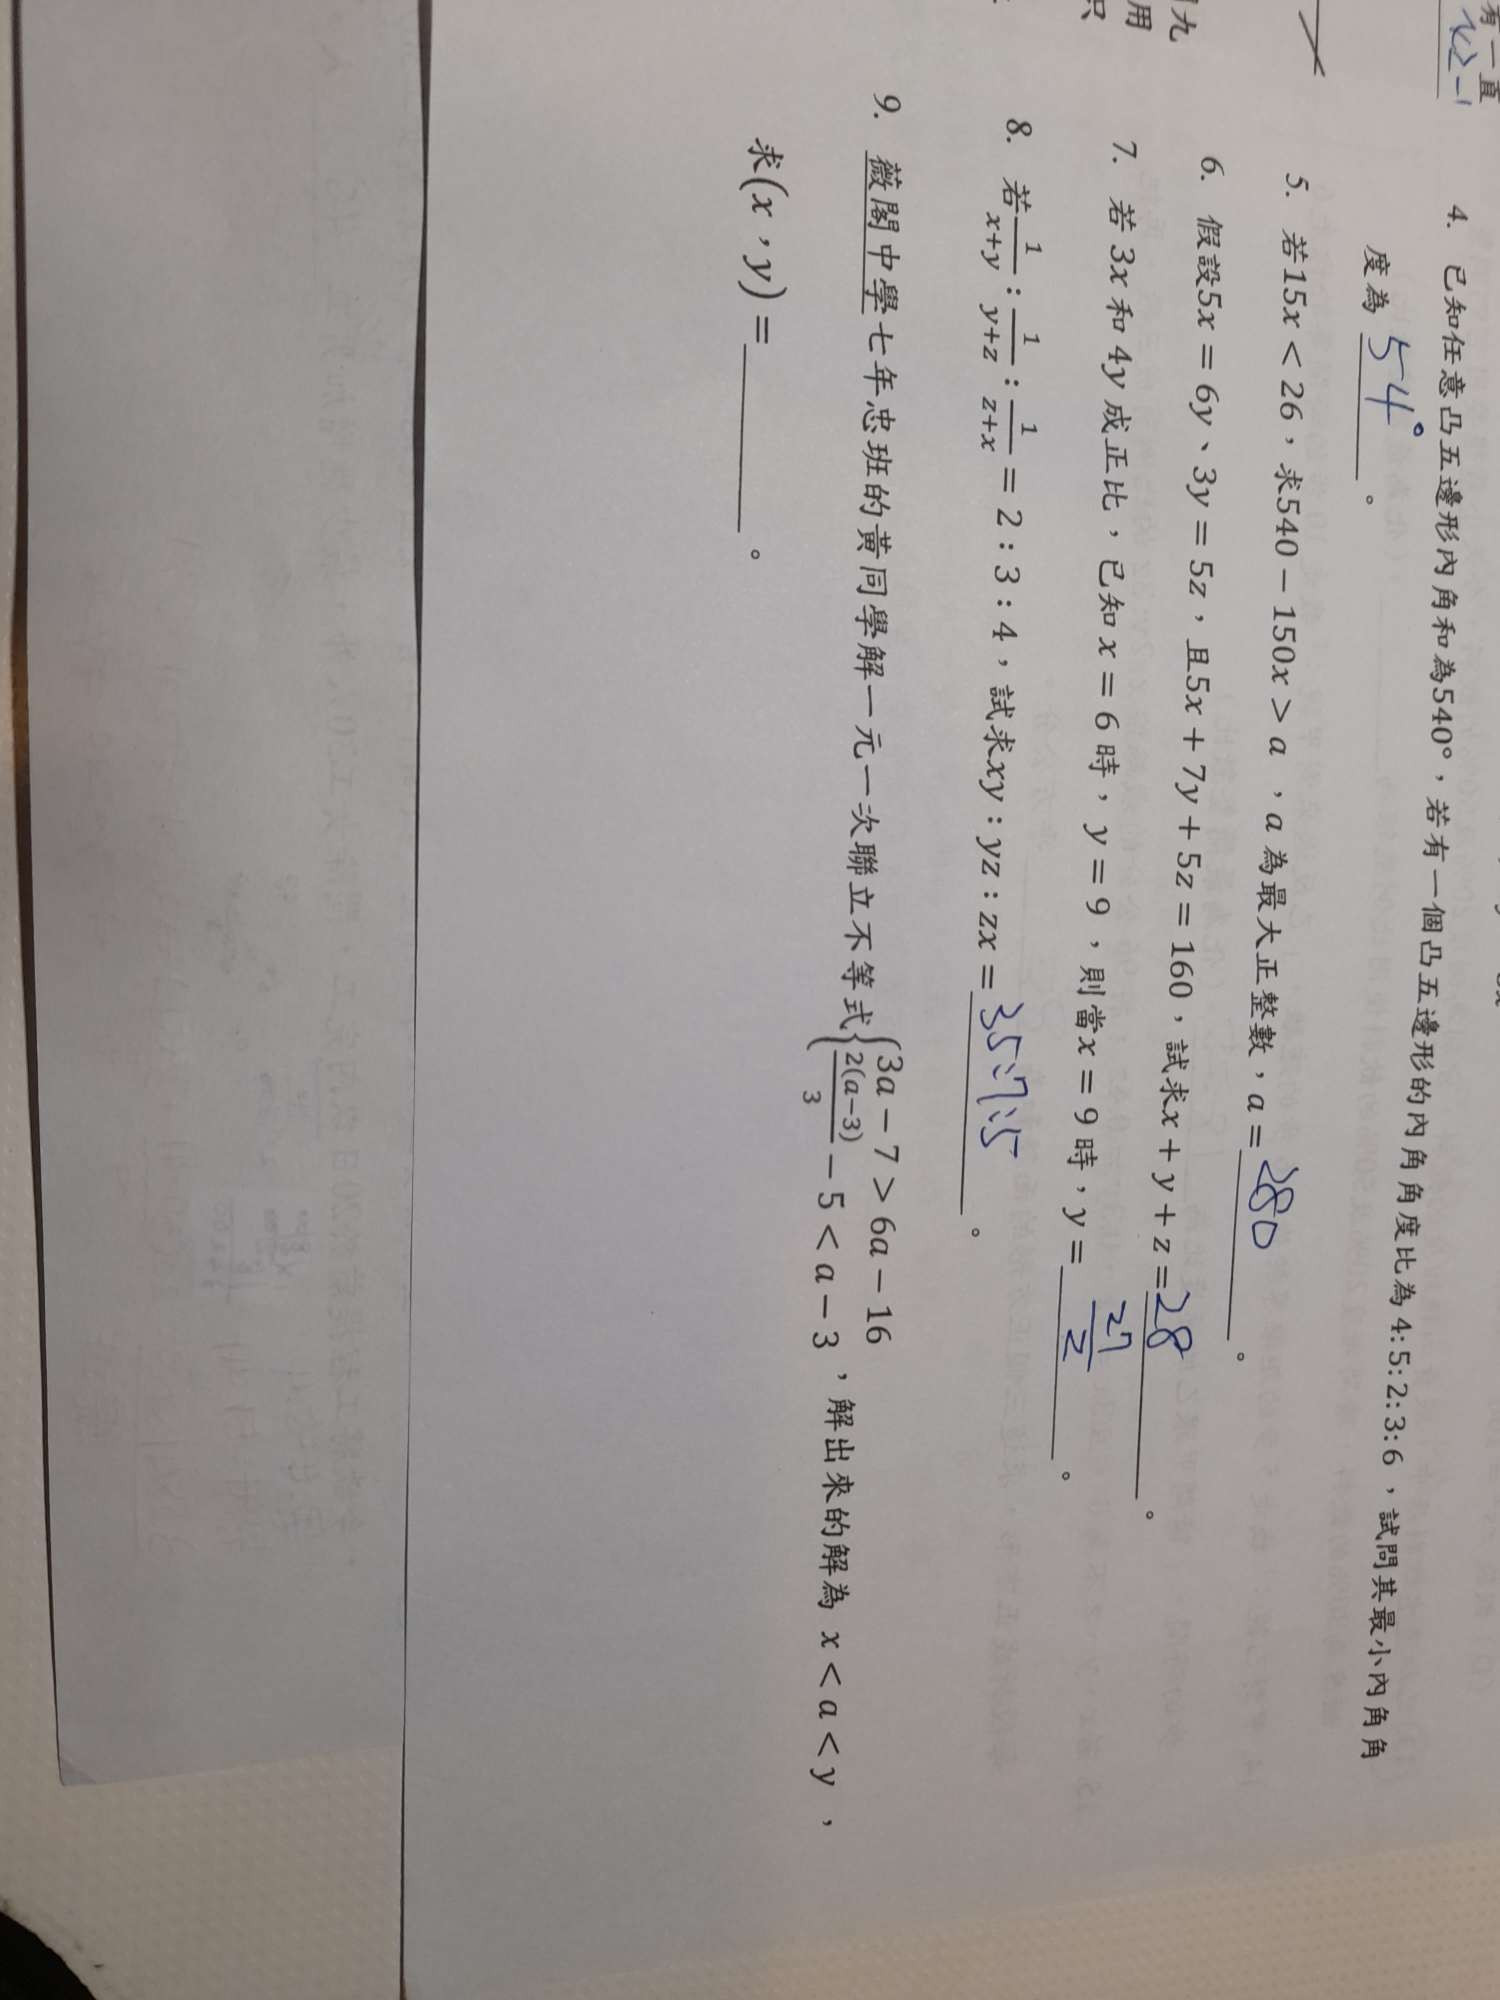 有一直
x≥-1
九
用
只
4. 已知任意凸五邊形內角和為540°，若有一個凸五邊形的內角角度比為 4:5:2:3:6，試問其最小內角角
度為 54° 。
5. 若15x < 26，求540 − 150x > a ，a 為最大正整數，a = 280 。
6. 假設5x = 6y、3y = 5z，且5x + 7y + 5z = 160，試求x + y + z = 28 。
7. 若 3x 和 4y 成正比，已知 x = 6 時，y = 9，則當x = 9 時，y = 27/2 。
8. 若 1/(x+y) : 1/(y+z) : 1/(z+x) = 2 : 3 : 4，試求xy : yz : zx = 35:7:5 。
9. 薇閣中學七年忠班的黃同學解一元一次聯立不等式 { 3a − 7 > 6a − 16
2(a−3)/3 − 5 < a − 3 ，解出來的解為 x < a < y ，
求(x，y) = 。